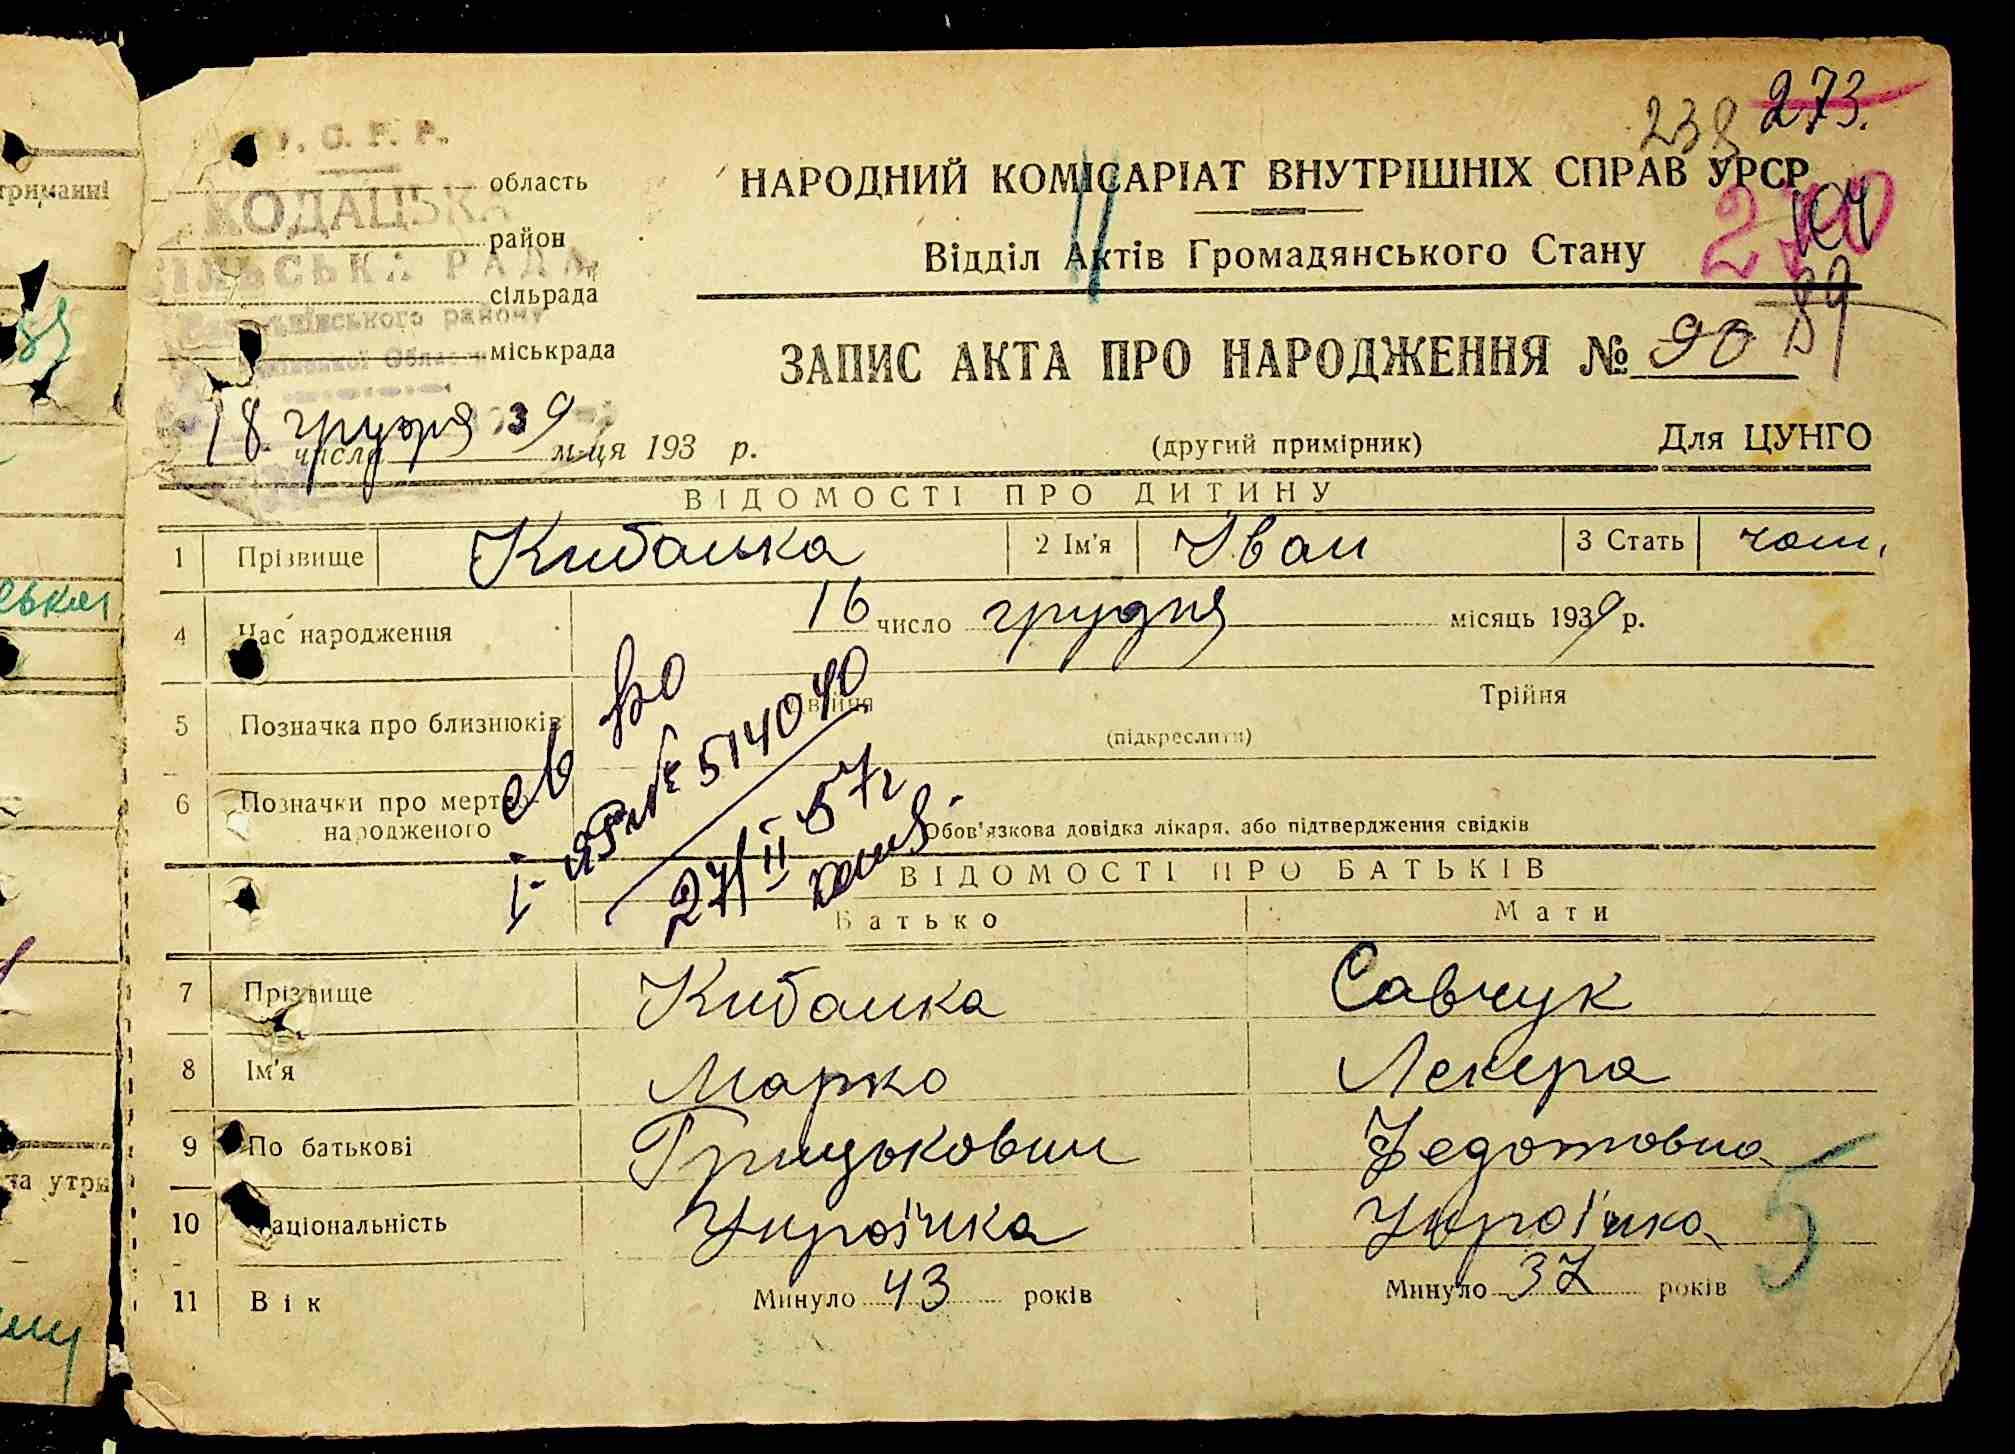 238 273.
У. С. Р. Р.
область
НАРОДНИЙ КОМІСАРІАТ ВНУТРІШНІХ СПРАВ УРСР
КОДАЦЬКА
район
Відділ Актів Громадянського Стану
СІЛЬСЬКА РАДА
сільрада
району
міськрада
ЗАПИС АКТА ПРО НАРОДЖЕННЯ № 90 89
18 числа грудня м-ця 1939 р.
(другий примірник)
Для ЦУНГО
ВІДОМОСТІ ПРО ДИТИНУ
1 Прізвище Кибалька 2 Ім'я Іван 3 Стать чол.
4 Час народження 16 число грудня місяць 1939 р.
5 Позначка про близнюків Двійня Трійня
(підкреслити)
6 Позначки про мертво-
народженого
Обов'язкова довідка лікаря, або підтвердження свідків
св во
№ 514040
27/II 57 г
ВІДОМОСТІ ПРО БАТЬКІВ
Батько Мати
7 Прізвище Кибалка Савчук
8 Ім'я Марко Лекера
9 По батькові Грицькович Федотовна
10 Національність Україїнка Україїнка
11 Вік Минуло 43 років Минуло 37 років
5